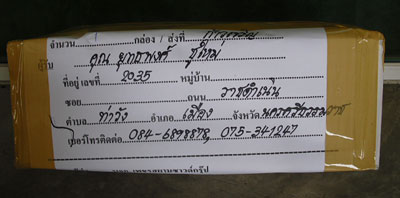 จำนวน...............กล่อง / ส่งที่
ผู้รับ คุณ ยุทธพงศ์ ชูใหม่
ที่อยู่ เลขที่ 2035 หมู่บ้าน
ซอย ถนน ราชดำเนิน
ตำบล ท่าวัง อำเภอ เมือง จังหวัด นครศรีธรรมราช
เบอร์โทรติดต่อ 084-6898878, 075-341247